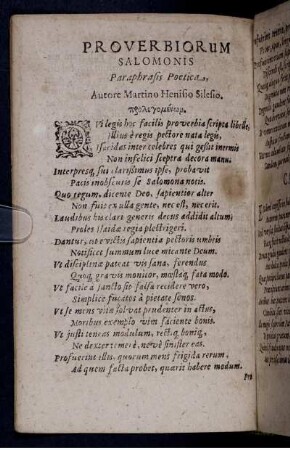 PROVERBIORUM
SALOMONIS
Paraphrasis Poetica,
Autore Martino Henisio Silesio.
προλεγομένων.
QVi legis hoc facilis proverbia scripta libello,
Illius è regis pectore nata legis,
Isacidas inter celebres qui gessit inermis
Non infelici sceptra decora manu.
Interpresq; sui clarissimus ipse, probavit
Pacis enobscuris se Salomona notis.
Quo regum, dicente Deo, sapientior alter
Non fuit ex ulla gente, nec est, nec erit.
Laudibus hic claro generis decus addidit altum,
Proles Isaidæ regia plectrigeri.
Dantur, ut evictis sapientia pectoris umbris
Notificet summum luce micante Deum.
Ut disciplinæ pateat vis sana, ferendus
Quoq; gravis monitor, mostaq; fata modo.
Ut facile à sancto sic falsa recidere vero,
Simplice fucatos à pietate sonos.
Ut se mens vitii solvat prudenter in actus,
Moribus exemplo vim faciente bonis.
Ut justi teneas modulum, rectaq; boniq;,
Ne dexter temerè, neve sinister eas.
Profuerint illis, quorum mens frigida rerum,
Ad quem facta probet, quærit habere modum.